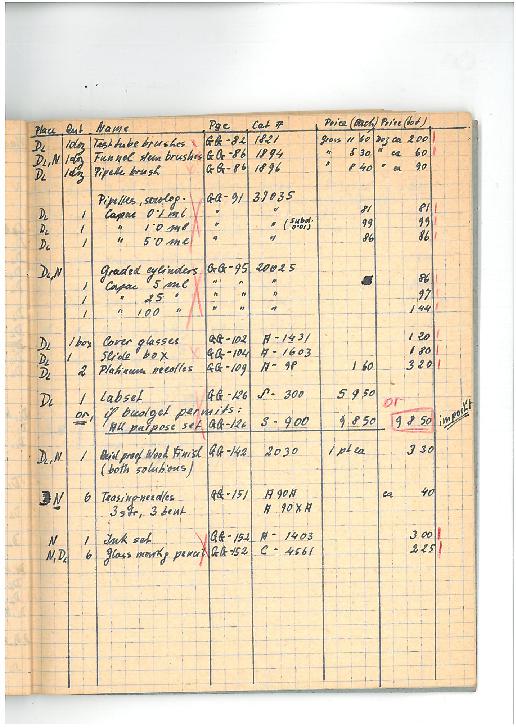 Place Qnt Name Pge Cat # Price (each) Price (tot)
DL 1 doz Testtube brushes GG-82 1821 gross 11 60 Doz ca 2 00
DL, N 1 doz Funnel stem brushes GG-86 1894 " 5 30 " ca 60
DL 1 doz Pipette brush GG-86 1896 " 8 40 " ca 90
Pipettes, serolog. GG-91 37035
DL 1 Capac 0.1 ml " " 81 81
DL 1 " 1.0 ml " " (subd. 0.01) 99 99
DL 1 " 5.0 ml " " 86 86
DL, N Graded cylinders GG-95 20025
1 Capac 5 ml " " " 86
1 " 25 " " " " 97
1 " 100 " " " " 1 44
DL 1 box Cover glasses GG-102 A-1431 1 20
DL 1 Slide box GG-104 A-1603 1 80
DL 2 Platinum needles GG-109 A-98 1 60 3 20
DL 1 Labset GG-126 S-300 5 9 50
or, if budget permits: or
All purpose set GG-126 S-900 9 8 50 9 8 50 import't
DL, N 1 Acid proof Wood Finish GG-142 2030 1 pt ca 3 30
(both solutions)
N 6 Teasing-needles GG-151 A 90A ca 40
3 str, 3 bent A 90XA
N 1 Ink set GG-152 A-1403 3.00
N, DL 6 Glass markg pencil GG-152 C-4561 2 25